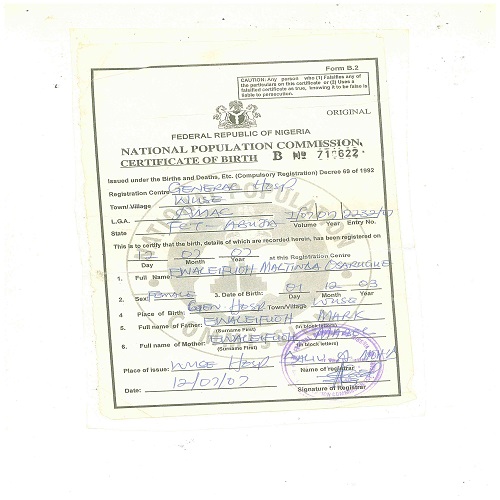 Form B.2
CAUTION: Any person who (1) Falsifies any of
the particulars on this certificate or (2) Uses a
falsified certificate as true, knowing it to be false is
liable to persecution.
ORIGINAL
FEDERAL REPUBLIC OF NIGERIA
NATIONAL POPULATION COMMISSION
CERTIFICATE OF BIRTH B No
Issued under the Births and Deaths, Etc. (Compulsory Registration) Decree 69 of 1992
Registration Centre GENERAL HOSP
Town/Village WUSE
L.G.A. AMAC
State FCT - ABUJA Volume Year Entry No.
This is to certify that the birth, details of which are recorded herein, has been registered on
12 07 07
Day Month Year at this Registration Centre
1. Full Name:
Day Month Year
2. Sex: FEMALE 3. Date of Birth: 01 12 03
4. Place of Birth: GEN HOSP Town/Village WUSE
5. Full name of Father: MARK
(Surname First) (in block letters)
6. Full name of Mother:
(Surname First) (in block letters)
Place of issue: WUSE HOSP
Name of registrar
Date: 12/07/07
Signature of Registrar